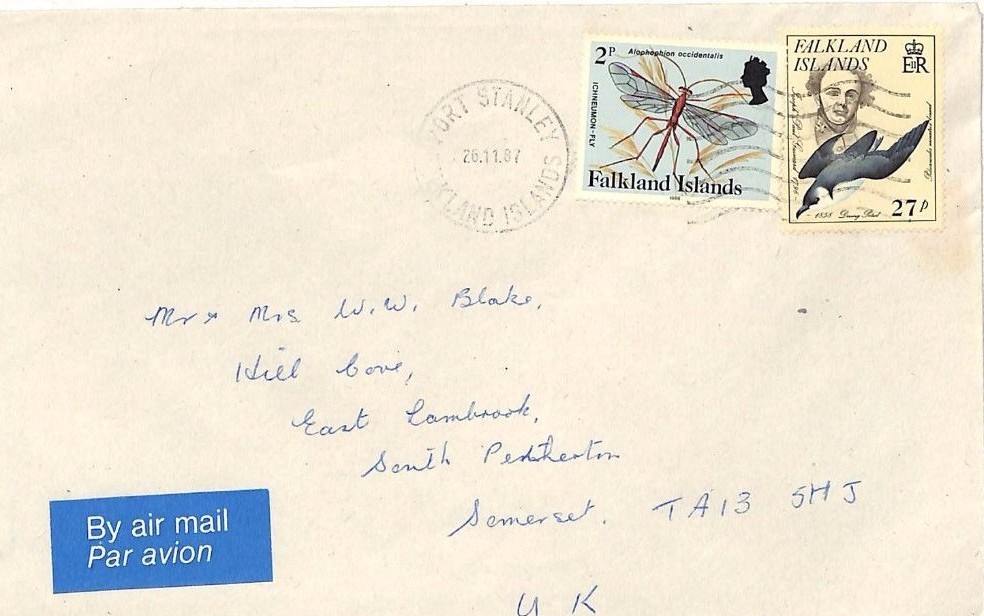 PORT STANLEY
26.11.87
FALKLAND ISLANDS
2P
Alophophion occidentalis
ICHNEUMON-FLY
Falkland Islands
1986
FALKLAND
ISLANDS
EIIR
1838 Diving Petrel
27p
Mr & Mrs W.W. Blake,
Hill Cove,
East Lambrook,
South Petherton
Somerset. TA13 5HJ
UK
By air mail
Par avion